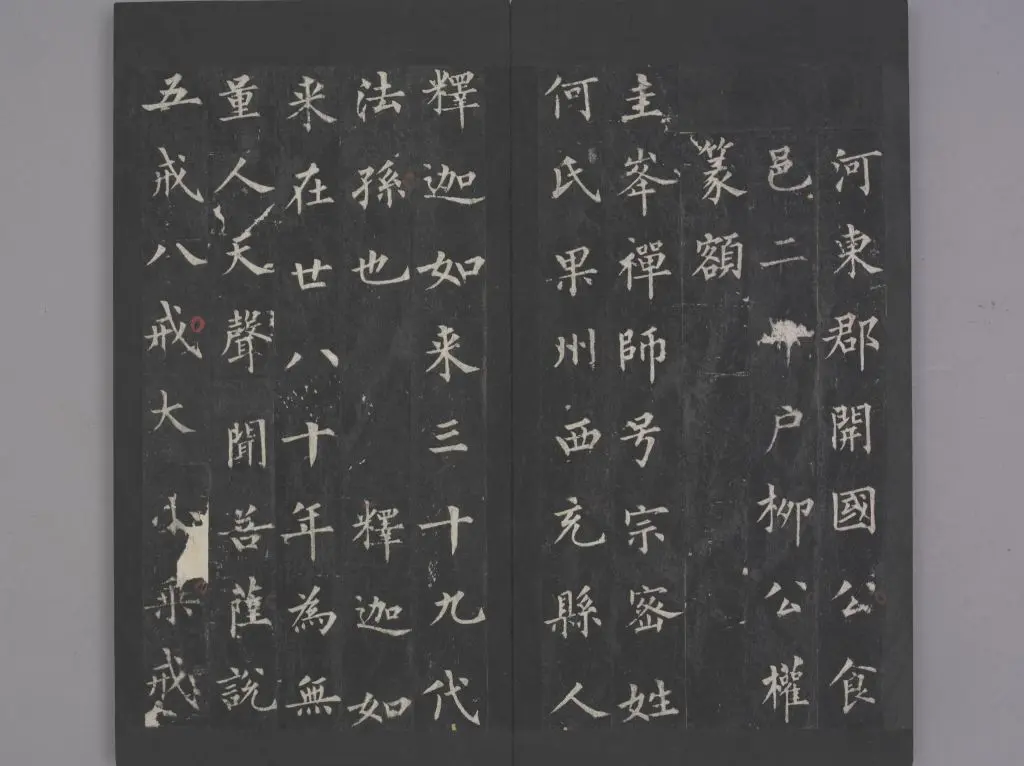 河東郡開國公食
邑二户柳公權
篆額
圭峯禪師号宗密姓
何氏果州西充縣人
釋迦如来三十九代
法孫也 釋迦如
来在世八十年為無
量人天聲聞菩薩說
五戒八戒大小乘戒